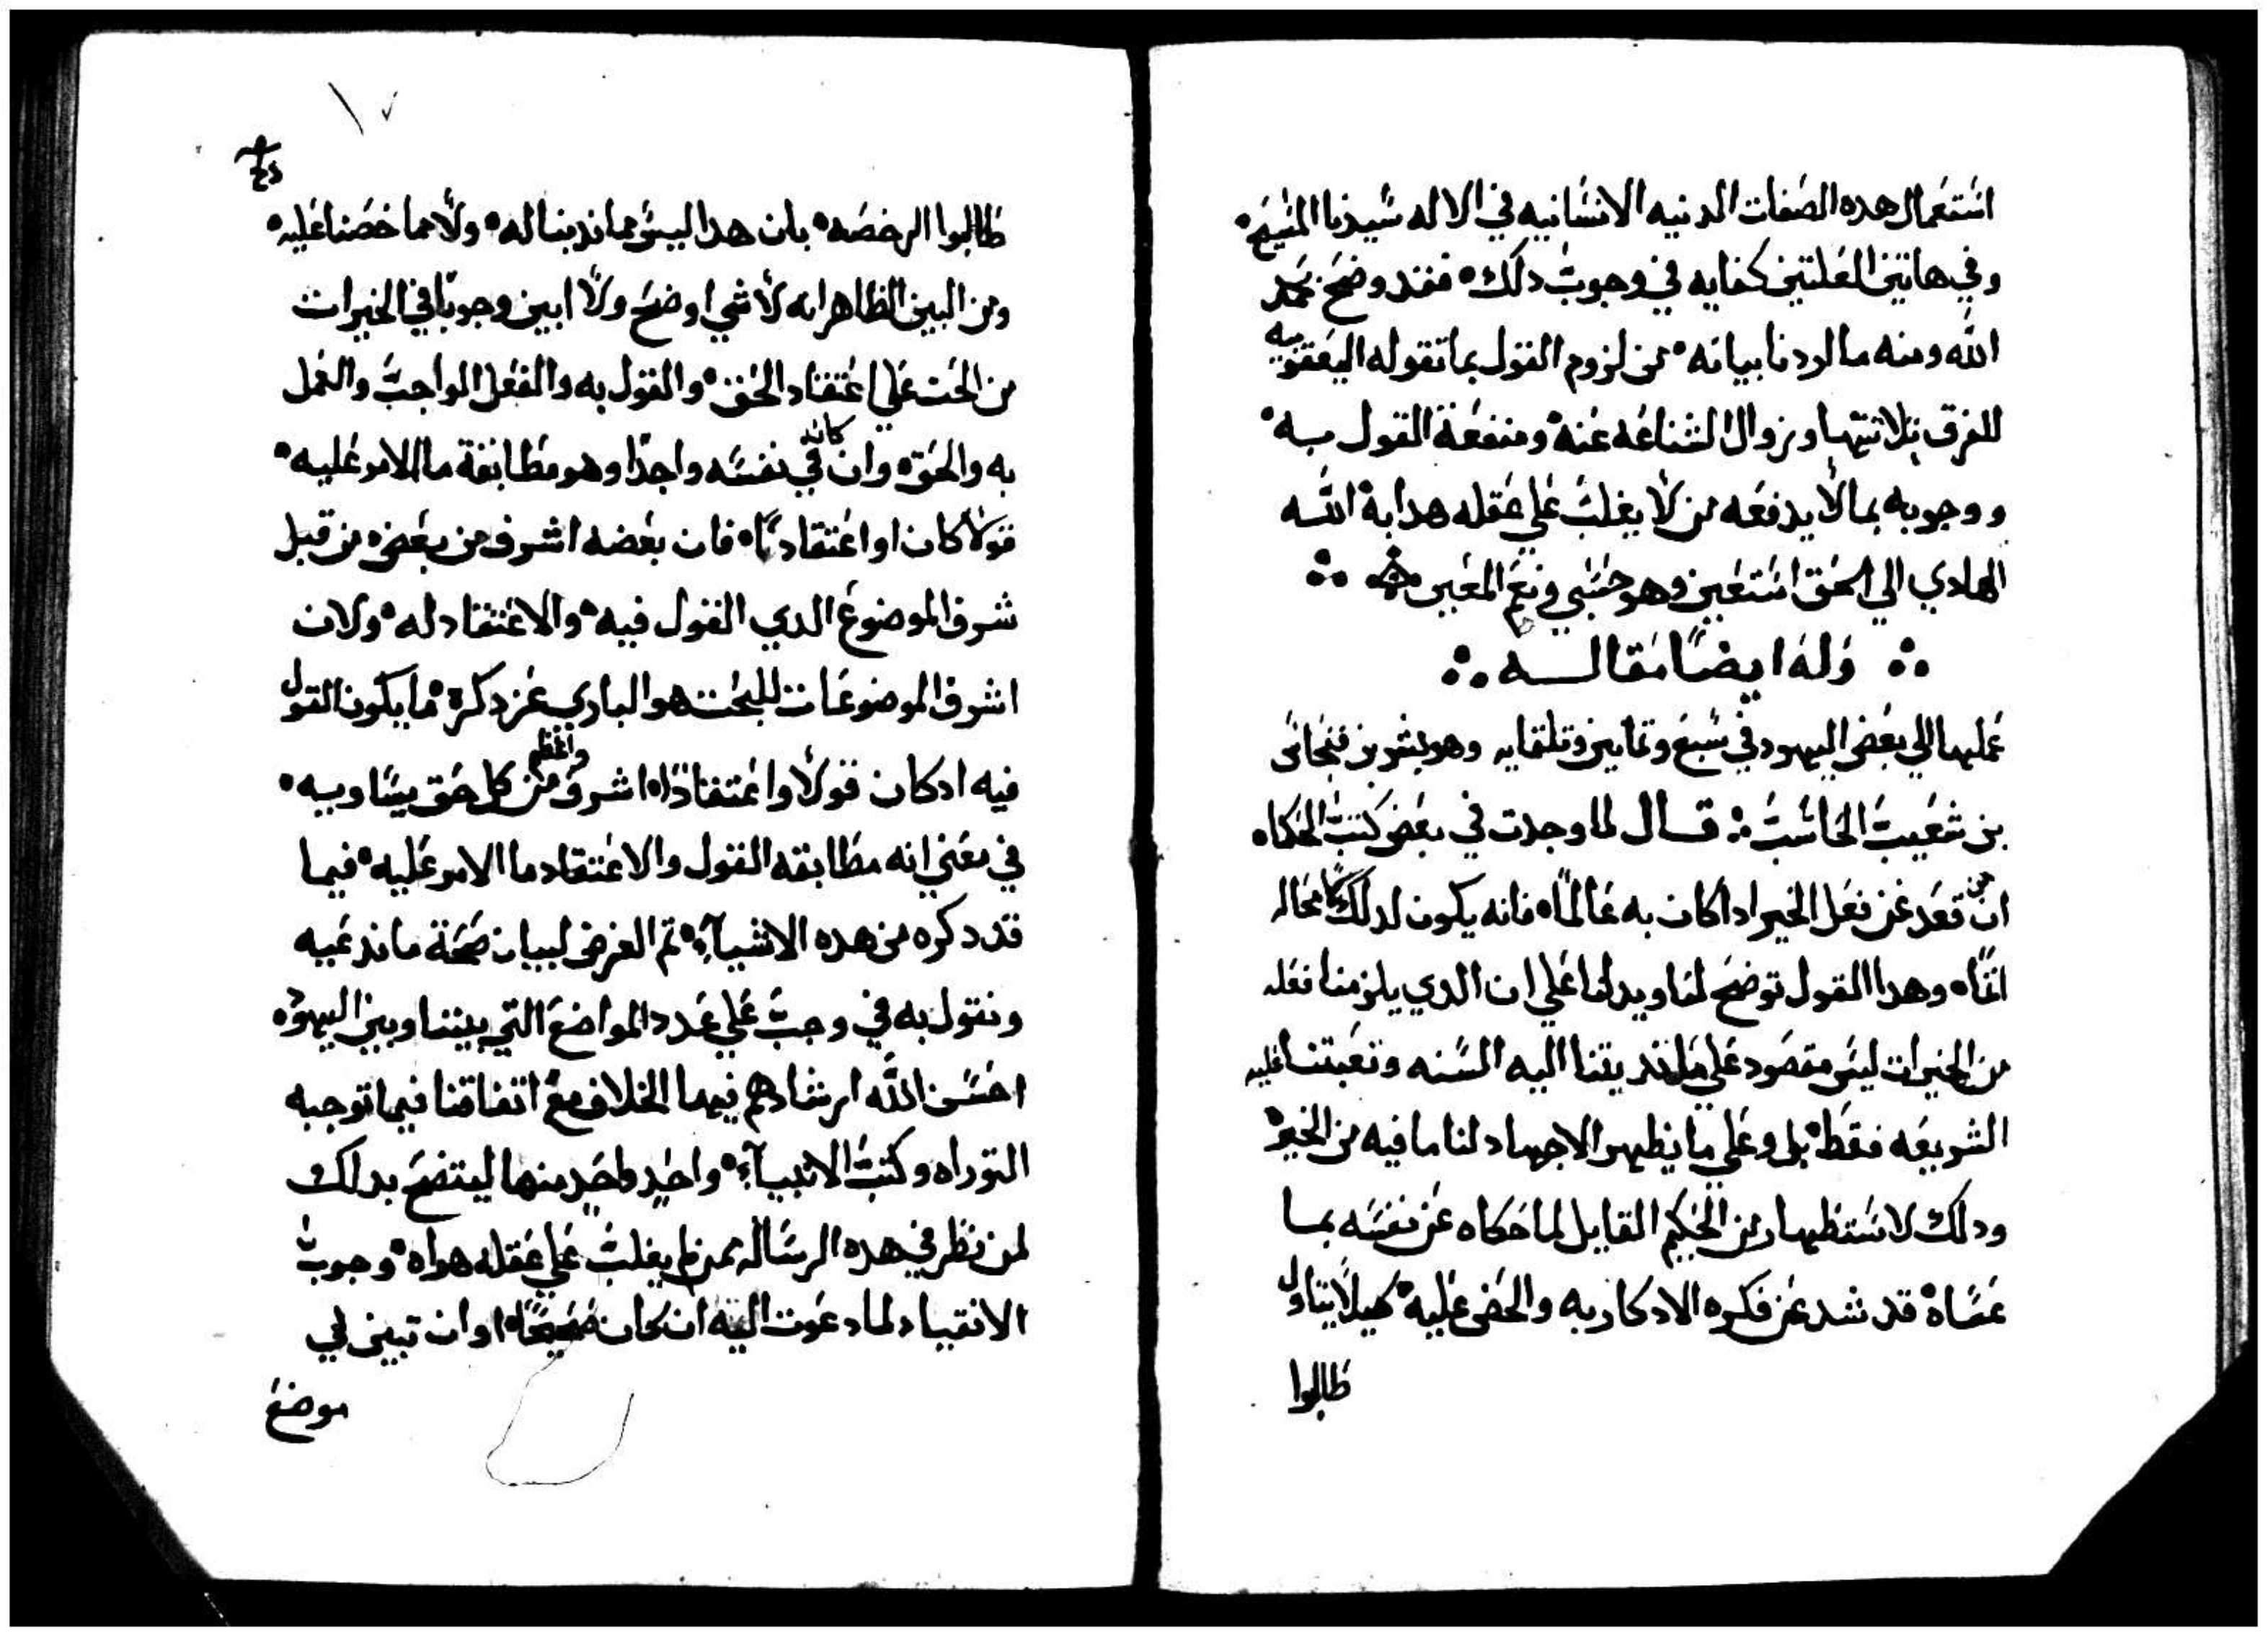 استعمال هده الصفات الدنيه الانسانيه في الاله سيدنا المسيح
وفي هاتين العلتين كفايه في وجوب دلك فقد وضح بحمد
الله ومنه ما اردنا بيانه من لزوم القول بما تقوله اليعقوبيه
للفرق بثلاثتها وزوال الشناعه عنه ومنفعة القول به
ووجوبه بما لا يدفعه من لا يغلب علي عقله هداية الله
الهادي الي الحق استعين وهو حسبي ونعم المعين
وله ايضا مقاله
عملها الي بعض اليهود في سبع وتمانين وتلتمايه وهو بشر بن فنحاس
بن شعيب الحاسب قال لما وجدت في بعض كتب الحكماء
ان من قعد عن فعل الخير ادا كان به عالما فانه يكون لدلك لا محاله
اتما وهدا القول توضح لنا ويدلنا علي ان الدي يلزمنا فعله
من الخيرات ليس مقصود علي ما تدبتنا اليه السنه وتعبتنا عليه
الشريعه فقط بل وعلي ما يظهر الاجهاد لنا ما فيه من الخير
ودلك لاستظهار من الحكيم القايل لما حكاه عن نفسه بما
عساه قد شد عن فكره الادكار به والحض عليه كيلا يتاول
طالبوا
٤٤
طالبوا الرخصه بان هدا ليس مما ندبنا له ولا مما حضنا عليه
ومن البين الظاهر انه لا شي اوضح ولا ابين وجوبا في الخيرات
من الحث علي اعتقاد الحق والقول به والفعل الواجب والعمل
به والحق وان كان في نفسه واحدا وهو مطابقة ما الامر عليه
قولا كان او اعتقادا فان بعضه اشرف من بعض من قبل
شرف الموضوع الدي القول فيه والاعتقاد له ولان
اشرف الموضوعات للبحث هو الباري عز دكره مما يكون القول
فيه ادكان قولا واعتقادا اشرف واعظم من كل حق يساويه
في معني انه مطابقه القول والاعتقاد ما الامر عليه فيما
قد دكره من هده الاشياء تم الغرض لبيان صحة ما ندعيه
ونقول به في وجب علي عدد المواضع التي بيننا وبين اليهود
احسن الله ارشادهم فيها الخلاف مع اتفاقنا فيما توجبه
التوراه وكتب الانبياء واحد واحد منها ليتضح بدلك
لمن نظر في هده الرساله ممن لم يغلب علي عقله هواه وجوب
الانقياد لما دعوت اليه ان كان صحيحا او ان تبين لي
موضع